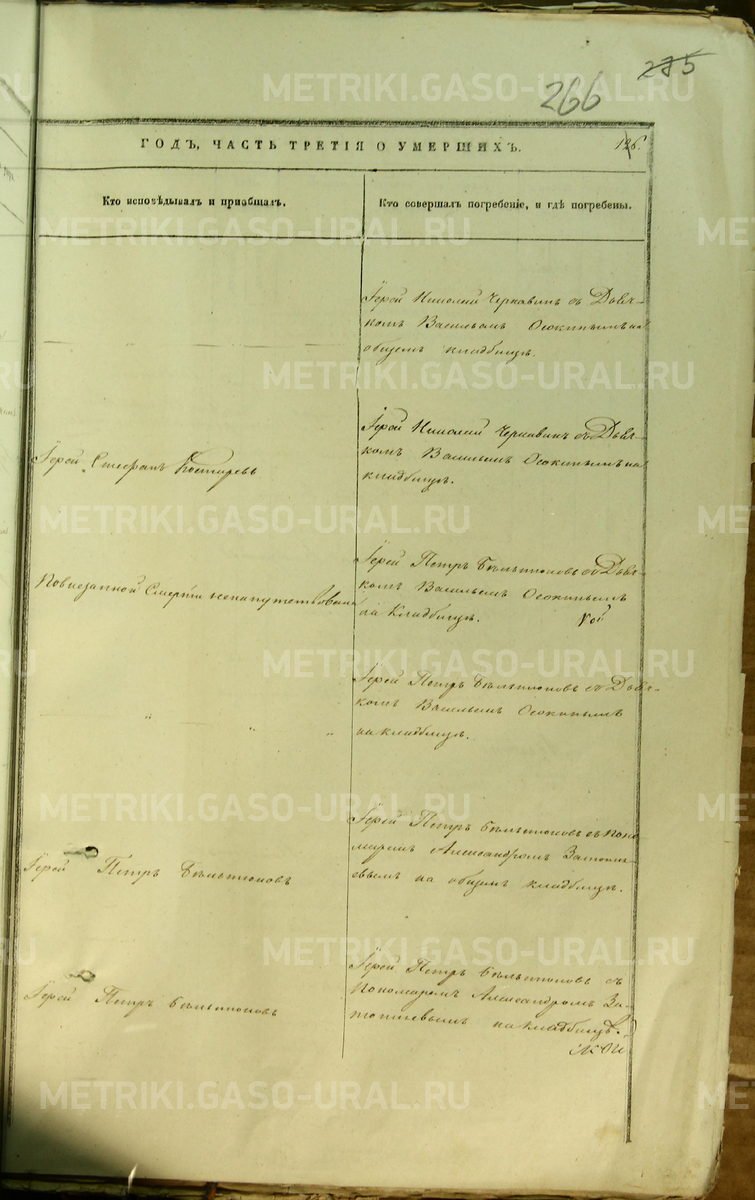 275
266
ГОДЪ, ЧАСТЬ ТРЕТІЯ О УМЕРШИХЪ.
126.
Кто исповѣдывалъ и пріобщалъ.
Кто совершалъ погребеніе, и гдѣ погребены.
Іерей Николай Чернавинъ съ Дьяч-
комъ Васильемъ Осокинымъ на
общемъ кладбищѣ.
Іерей Стефанъ
Іерей Николай Чернавинъ съ Дьяч-
комъ Васильемъ Осокинымъ на
кладбищѣ.
Повнезапной Смерти ненапутствованъ
Іерей Петръ съ Дьяч-
комъ Васильемъ Осокинымъ
на Кладбищѣ.
Іерей Петръ съ Дьяч-
комъ Васильемъ Осокинымъ
на кладбищѣ.
Іерей Петръ
Іерей Петръ съ Поно
маремъ Александромъ
на общемъ кладбищѣ.
Іерей Петръ
Іерей Петръ съ
Пономаремъ Александромъ
на кладбищѣ.
METRIKI.GASO-URAL.RU